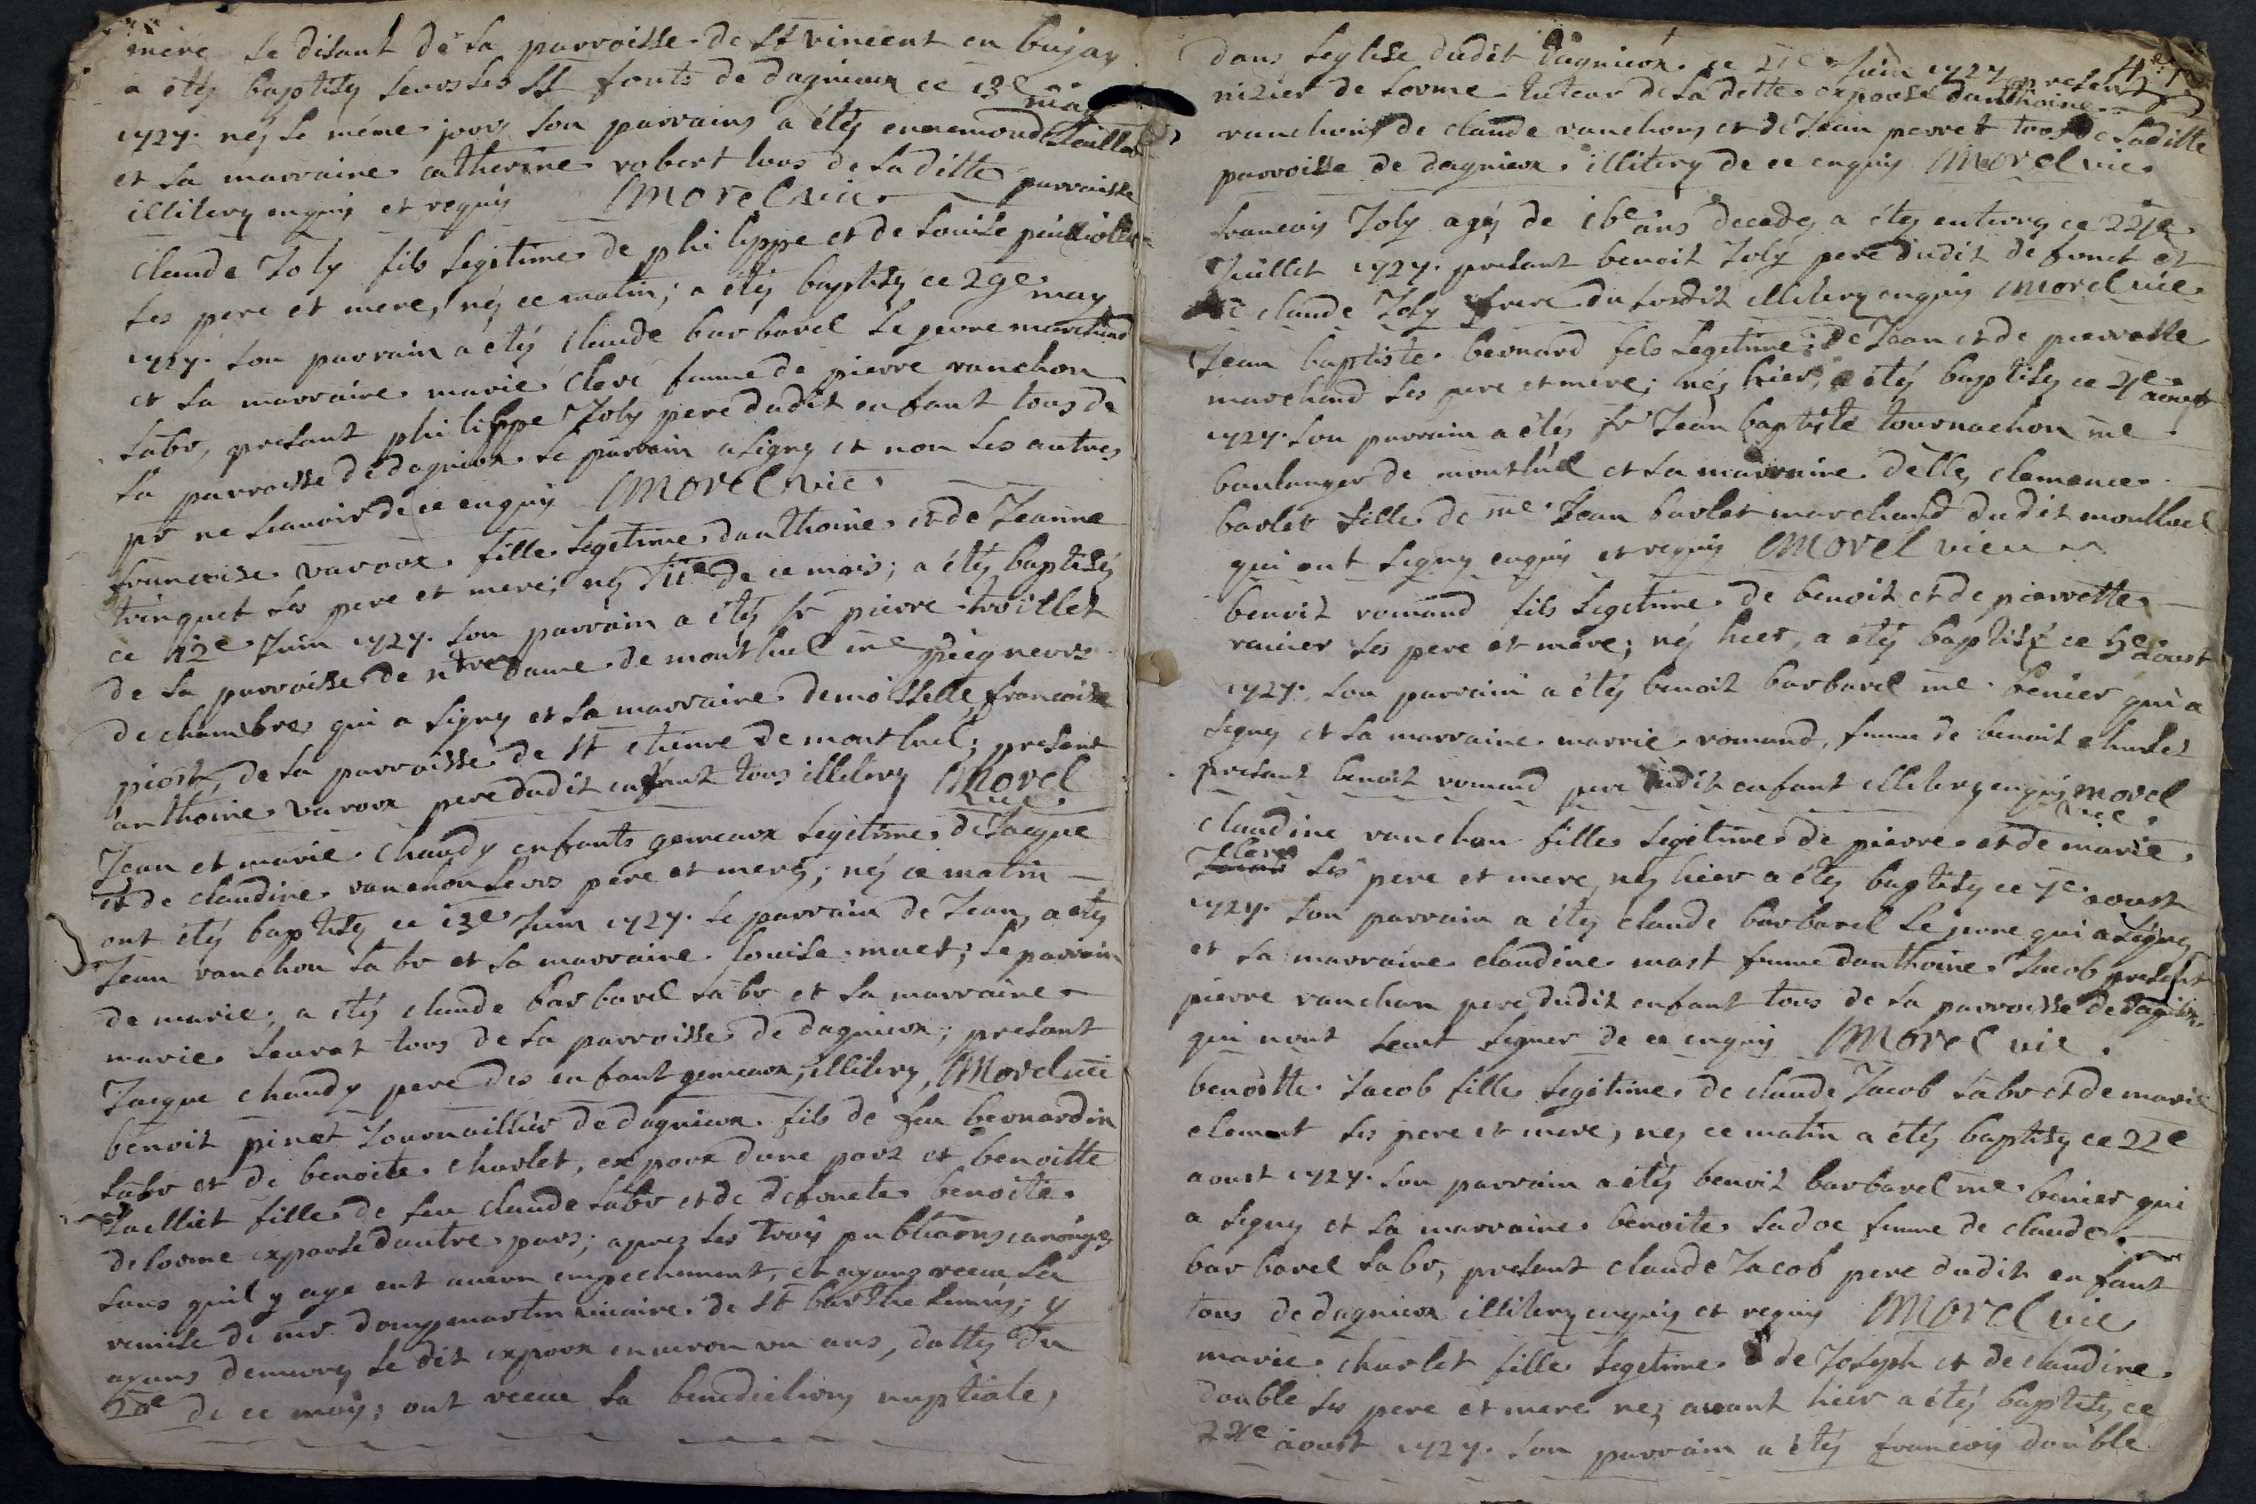 mere se disant de la parroisse de St vincent en bujay
a etéz baptiséz sur les St fonts de dagnieux ce 13e may
1727. néz le méme jour son parrains a étéz ennemond
et sa marraine catherine robert tous de laditte parroisse
illiteréz enquis et requis Morel vic
Claude Joly fils legitime de philippe et de Louise
ses pere et mere, néz ce matin; a étéz baptiséz ce 29e may
1727. son parrain a étéz claude barbarel le jeune marchand
et sa marraine marie clere femme de pierre ranchon
labr, presant philippe Joly pere dudit enfant tous de
la parroisse de dagnieux le parrain a signéz et non les autres
pr ne scauoir de ce enquis Morel vic.
francoise varoux fille legitime danthoine et de Jeanne
trinquet ses pere et mere; néz 11e de ce mois; a étéz baptiséz
ce 12e Juin 1727. son parrain a étéz sr pierre troillet
de la parroisse de ntre dame de montluel me peigneurs
de chambre qui a signéz et sa marraine demoisselle francoise
piost, de la parroisse de St etienne de montluel; presant
anthoine varoux pere dudit enfant tous illiteréz Morel
vic.
Jean et marie chaudy enfants gemeaux legitime de Jacque
et de claudine ranchon leurs pere et meres; néz ce matin
ont étéz baptiséz ce 13e Juin 1727. le parrain de Jean, a etéz
Jean ranchon labr et sa marraine louise muet; le parrain
de marie; a étéz claude barbarel labr et la marraine
marie seurat tous de la parroisse de dagnieux; presant
Jacque chaudy pere des enfant gemeaux, illiteréz, Morel vic
benoit pinet Journaillier de dagnieux fils de feu bernardin
labr et de benoite charlet, expoux dune part et benoitte
Jaelliet fille de feu claude labr et de defuncte benoite
delorme expouse dautre part; apres les trois publications canoniques
sans quil y aye eut aucun empechement, et ayans receu la
remise de mr dompmartin vicaire de St barthelemis; y
ayans demeuréz le dit expoux enuiron un ans, datté du
de ce mois; ont receue la benediction nuptiale,
dans leglise dudit dagnieux ce 21e Juin 1727 presant
nizier de lorme tuteur de la dette expouse danthoine
ranchons de claude ranchons et de Jean perret tous de laditte
parroisse de dagnieux illiteréz de ce enquis Morel vic.
francois Joly agéz de 16e ans decedéz a étéz enterréz ce
Juillet 1727. presant benoit Joly pere dudit defunct et
claude Joly frere du susdit illiteréz enquis Morel vic.
Jean baptiste bernard fils legitime de Jean et de pierrette
marchand ses pere et mere; néz hier, a étéz baptiséz ce aoust
1727. son parrain a étéz sr Jean baptiste tournachon me
boulanger de montluel et sa marraine delle clemence
barlet fille de me Jean barlet marchand dudit montluel
qui ont signéz enquis et requis Morel vic
benoit romand fils legitime de benoit et de pierrette
rainier ses pere et mere; néz hier, a étéz baptiséz ce 5e aoust
1727. son parrain a étéz benoit barbarel me benier qui a
signéz et sa marraine marrie romand, femme de benoit
presant benoit romand pere dudit enfant illiteréz enquis Morel
vic.
claudine ranchon fille legitime de pierre et de marie
clere ses pere et mere néz hier a étéz baptiséz ce 7e aoust
1727. son parrain a étéz claude barbarel le jeune qui a signéz
et sa marraine claudine mast femme danthoine Jacob presant
pierre ranchon pere dudit enfant tous de la parroisse de dagnieux
qui nont sceut signer de ce enquis Morel vic.
benoitte Jacob fille legitime de claude Jacob labr et de marie
clement ses pere et mere, néz ce matin a étéz baptiséz ce 22e
aoust 1727. son parrain a étéz benoit barbarel me benier qui
a signéz et sa marraine benoite ladoe femme de claude
barbarel labr, presant claude Jacob pere dudit enfant
tous de dagnieux illiteréz enquis et requis Morel vic
marie charlet fille legitime de Joseph et de claudine
double ses pere et mere néz auant hier a étéz baptiséz ce
aoust 1727. son parrain a étéz francois double